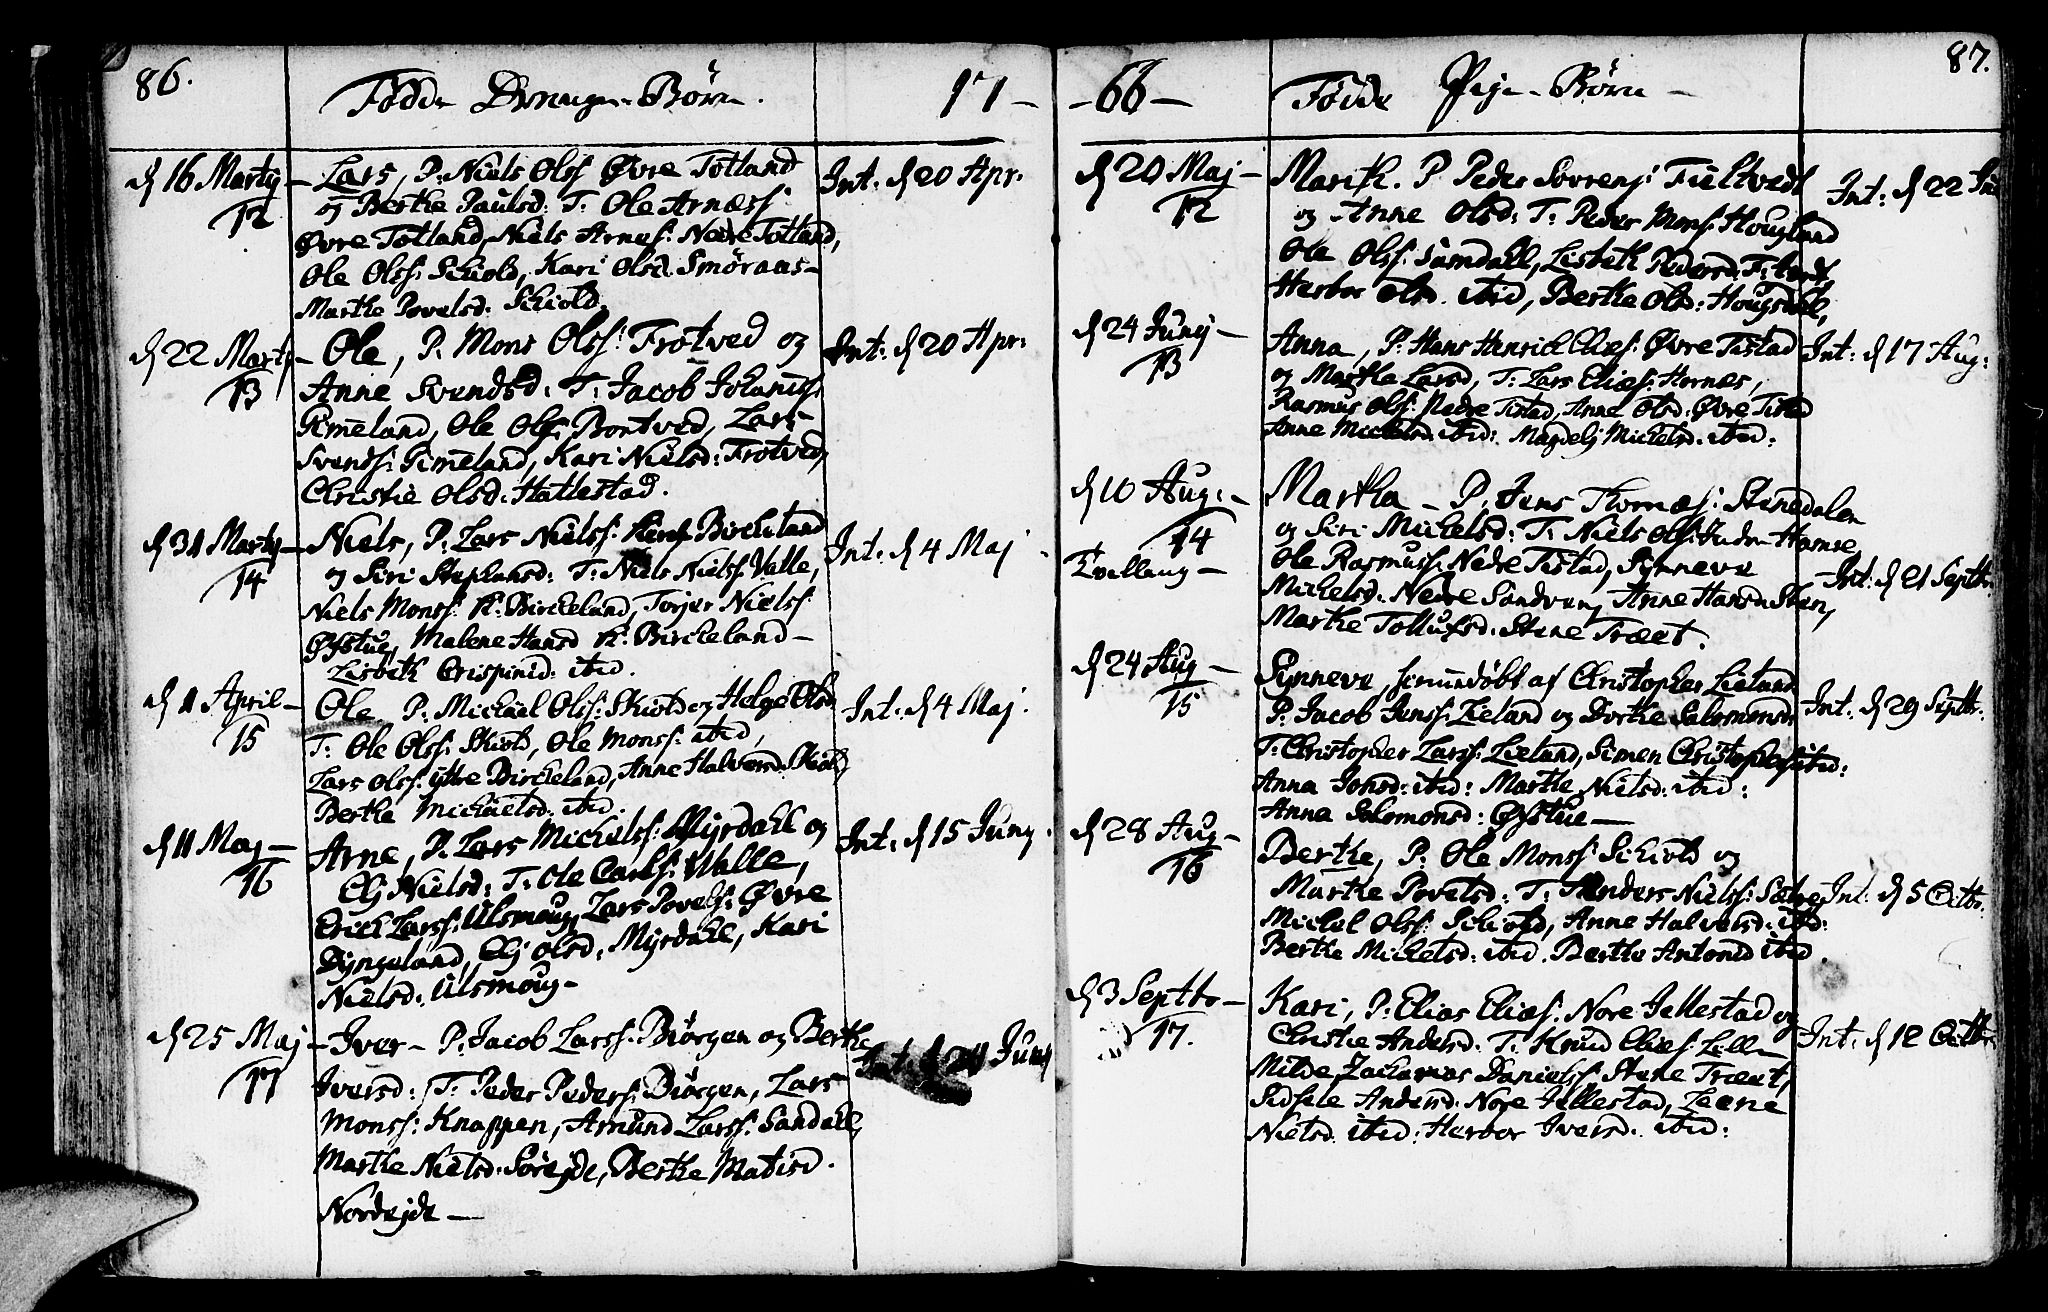 86.
Fødde Drenge-Børn.
17 -
d 16 Martij -
12
Lars, P: Niels Olss: Øvre Totland
og Berthe Paulsd: T: Ole Arnæss:
Øvre Totland, Niels Arnes: Nedre Totland,
Ole Olss: Schiold, Kari Olsd. Smøraas -
Marthe Povelsd: Schiold.
Int: d 20 Apr:
d 22 Martij -
13
Ole, P: Mons Olss: Trotved og
Anne Svendsd: T: Jacob Johanss:
Gimeland, Ole Olss: Bontved, Lars
Svends: Gimeland, Kari Nielsd: Trotved,
Christie Olsd: Hattestad.
Int: d 20 Apr:
d 31 Martij -
14
Niels, P: Lars Nielss: Birckeland
og Siri Stephansd: T: Niels Nielss: Valle,
Niels Monss: K: Birckeland, Torjer Nielss:
Øÿstue, Malene Hansd K: Birckeland -
Lisbeth Crispinid: ibid.
Int: d 4 Maj
d 1 April -
15
Ole, P: Michael Olss: Skiold og Helge Olsd
T: Ole Olss: Skiold, Ole Monss: ibid,
Lars Olss: Yttre Birckeland, Anne Halversd: Skiold,
Berthe Michaelsd: ibid.
Int: d 4 Maj.
d 11 Maj -
16
Arne, P: Lars Michelss: Myrdahl og
Elj Nielsd: T: Ole Carls: Walle,
Erich Larss: Ulsmoug, Lars Povels: Øvre
Dyngeland, Elj Olsd: Myrdahl, Kari
Nielsd: Ulsmoug -
Int: d 15 Junij.
d 25 Maj -
17
Iver - P: Jacob Larss: Biørgen og Berthe
Iversd: T: Peder Peders: Biørgen, Lars
Monss: Knappen, Amund Larss: Sandahl,
Marthe Nielsd: Sørejde, Berthe Matisd.
Nordejde -
Int d 24 Junij
- 66 -
Fødde Pige-Børn -
87.
d 20 Maj -
12
Marith. P Peder Sovrens: Tveltvedt
og Anne Olsd: T: Peder Mons: Hougland
Ole Olss: Samdahl, Lisbeth Pedersd:
Herbor Olsd. ibid, Berthe Olsd: Hougsdal,
Int: d 22 Jun
d 24 Junij -
13
Anna, P: Hans Henrich Elies: Øvre Tistad
og Martha Larsd, T: Lars Elies: Hornæs,
Rasmus Olss: Nedre Tistad, Anne Olsd: Øvre Tistad
Anne Michelsd: ibid: Magdelj Michelsd: ibid:
Int: d 17 Aug:
d 10 Aug: -
14
Tvilling -
Martha - P: Jens Thomæs: Stenedalen
og Siri Michelsd: T: Niels Olss: Indre Hamre
Ole Rasmuss: Nedre Tistad, Synneve
Michelsd: Nedre Sandven, Anne Hansd: Sten,
Marthe Tollufsd: Stene Træet.
Int: d 21 Septbr:
d 24 Aug -
15
Synneve, hiemmedøbt af Christopher Lieland
P: Jacob Jenss: Lieland og Dorthe Salomonsd:
T: Christopher Larss: Lieland, Simen Christophs: ibid:
Anna Jonsd: ibid: Marthe Nielsd: ibid:
Anne Salomonsd: Øÿstue -
Int: d 29 Septbr:
d 28 Aug -
16
Berthe, P: Ole Monss: Schiold og
Marthe Povelsd: T: Anders Nielss: Sætre
Michel Olss: Schiold, Anne Halversd: ibd:
Berthe Michelsd: ibid. Berthe Antonid ibid
Int: d 5 Octbr.
d 3 Septbr -
17.
Kari, P: Elias Elies: Nore Jellestad og
Christie Andersd: T: Knud Elies: Lille
Milde, Zacharias Daniels: Stene Træet,
Sidsele Andersd: Nore Jellestad, Leene
Nielsd ibid: Herbor Iversd: ibid:
Int: d 12 Octbr